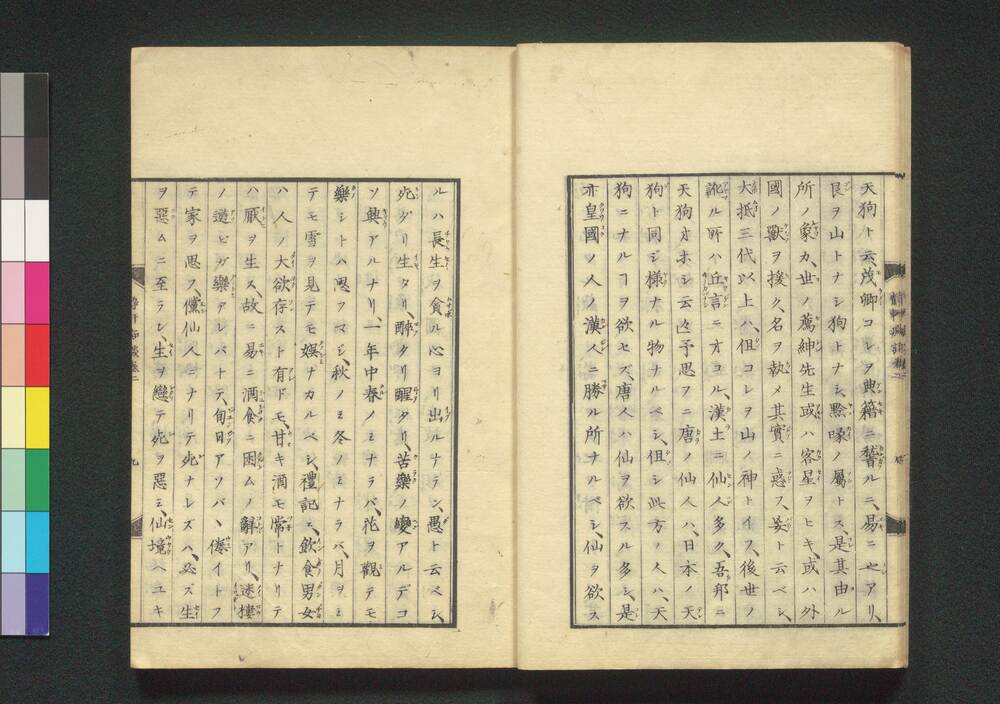 天狗ト云、茂卿コレヲ典籍ニ誓ルニ、易ニ也アリ、
艮ヲ山トナシ狗トナシ黔喙ノ屬トス、是其由ル
所ノ象カ、世ノ薦紳先生或ハ客星ヲヒキ、或ハ外
國ノ獸ヲ援ク、名ヲ執メ其實ニ惑フ、妄ト云ベシ、
大抵三代以上ハ、但コレヲ山ノ神トイフ、後世ノ
訛ル所ハ丘言ニオコル、漢土ニ仙人多ク、吾邦ニ
天狗オホシ云々予思フニ唐ノ仙人ハ、日本ノ天
狗ト同ジ様ナル物ナルベシ、但シ此方ノ人ハ、天
狗ニナルヿヲ欲セズ、唐人ハ仙ヲ欲スル多シ、是
亦皇國ノ人ノ漢人ニ勝ル所ナルベシ、仙ヲ欲ス
ルハ長生ヲ貪ル心ヨリ出ルナラン、愚ト云ベシ、
死ダリ生タリ、醉タリ醒タリ、苦樂ノ變アルデコ
ソ興アルナリ、一年中春ノミナラバ、花ヲ觀テモ
樂シトハ思フマジ、秋ノミ冬ノミナラバ、月ヲミ
テモ雪ヲ見テモ娯ナカルベシ、禮記ニ、飲食男女
ハ人ノ大欲存スト有ドモ、甘キ酒モ常トナリテ
ハ厭ヲ生ス、故ニ易ニ酒食ニ困ムノ辭アリ、迷樓
ノ遊ビガ樂アレバトテ、旬日アソバヽ倦イトフ
テ家ヲ思フ、儻仙人ニナリテ死ナレズハ、必ズ生
ヲ惡ムニ至ラン、生ヲ戀テ死ヲ惡ミ、仙境ヘユキ
九